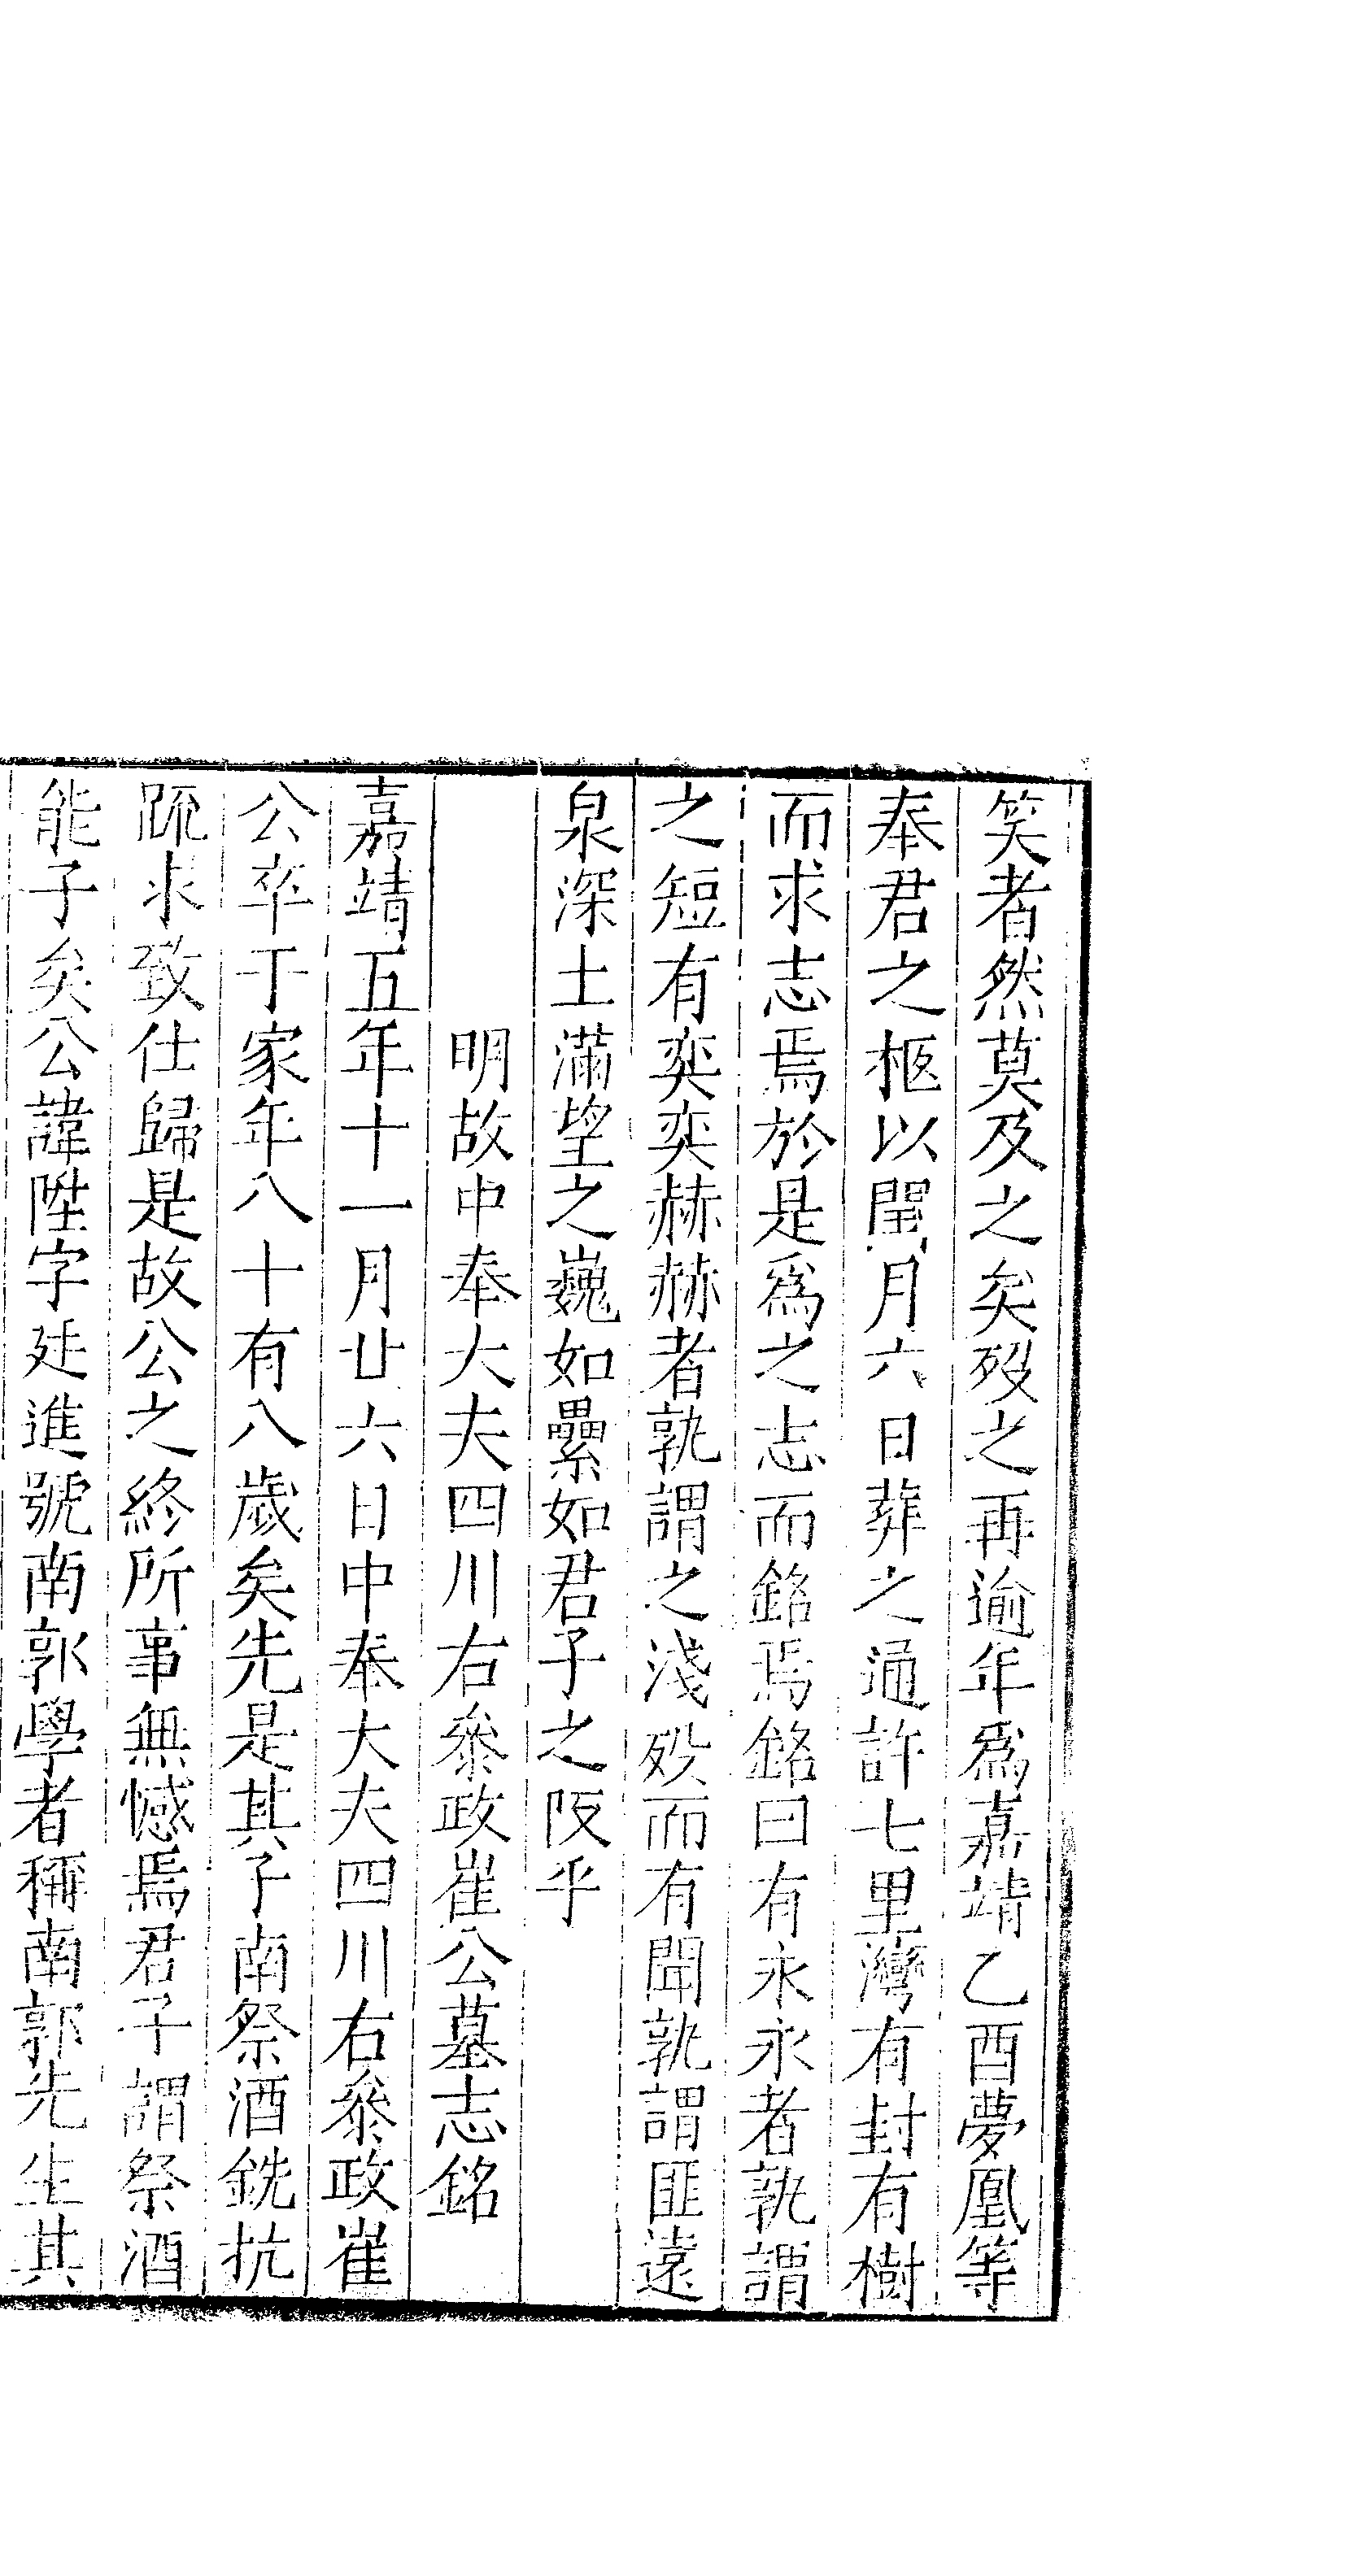 笑者然莫及之矣歿之再逾年爲嘉靖乙酉夢凰等
奉君之柩以閏月六日葬之通許七里灣有封有樹
而求志焉於是爲之志而銘焉銘曰有永永者孰謂
之短有奕奕赫赫者孰謂之淺歿而有聞孰謂匪遠
泉深土滿望之巍如纍如君子之阪乎
明故中奉大夫四川右參政崔公墓志銘
嘉靖五年十一月廿六日中奉大夫四川右參政崔
公卒于家年八十有八歲矣先是其子南祭酒銑抗
疏求致仕歸是故公之終所事無憾焉君子謂祭酒
能子矣公諱陞字廷進號南郭學者稱南郭先生其